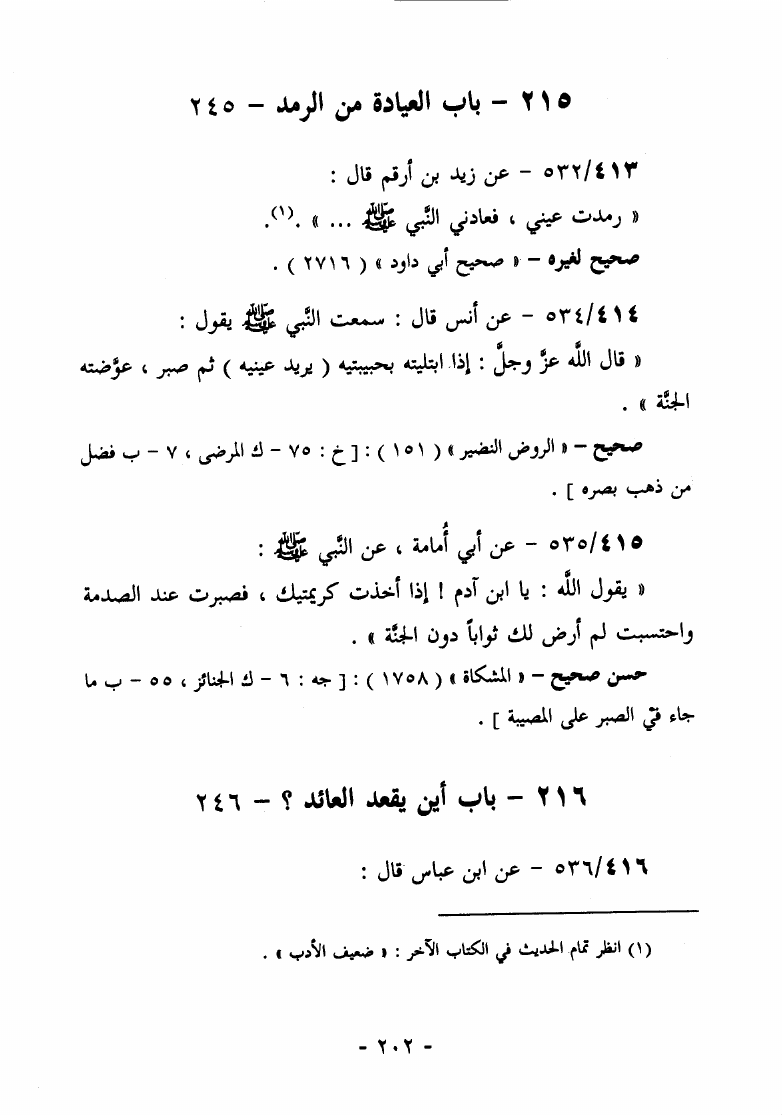 ٢١٥ - باب العيادة من الرمد - ٢٤٥
٥٣٢/٤١٣ - عن زيد بن أرقم قال :
« رمدت عيني ، فعادني النَّبي ﷺ ... » .(١).
صحيح لغيره - « صحيح أبي داود » ( ٢٧١٦ ) .
٥٣٤/٤١٤ - عن أنس قال : سمعت النَّبي ﷺ يقول :
« قال اللَّه عزَّ وجلَّ : إذا ابتليته بحبيبتيه ( يريد عينيه ) ثم صبر ، عوَّضته
الجنَّة » .
صحيح - « الروض النضير » ( ١٥١ ) : [ خ : ٧٥ - ك المرضى ، ٧ - ب فضل
من ذهب بصره ] .
٥٣٥/٤١٥ - عن أبي أُمامة ، عن النَّبي ﷺ :
« يقول اللَّه : يا ابن آدم ! إذا أخذت كريمتيك ، فصبرت عند الصدمة
واحتسبت لم أرض لك ثواباً دون الجنَّة » .
حسن صحيح - « المشكاة » ( ١٧٥٨ ) : [ جه : ٦ - ك الجنائز ، ٥٥ - ب ما
جاء في الصبر على المصيبة ] .
٢١٦ - باب أين يقعد العائد ؟ - ٢٤٦
٥٣٦/٤١٦ - عن ابن عباس قال :
(١) انظر تمام الحديث في الكتاب الآخر : « ضعيف الأدب » .
- ٢٠٢ -